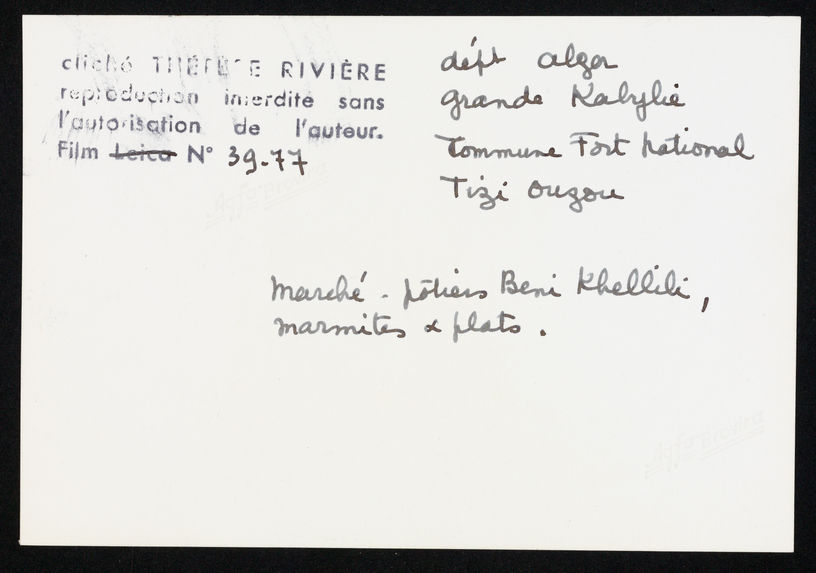 cliché THÉRÈSE RIVIÈRE
reproduction interdite sans
l'autorisation de l'auteur.
Film Leica N° 39-77
dépt alger
grande Kabylie
Commune Fort national
Tizi ouzou
marché - pôtiers Beni Khellili,
marmites & plats.